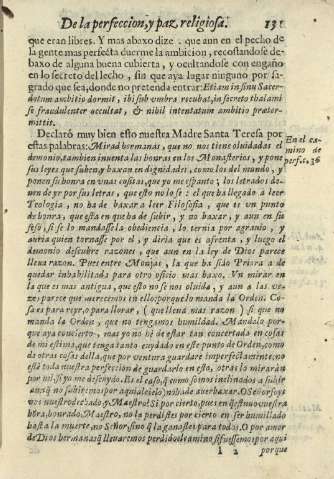 De la perfeccion, y paz religiosa. 131
que eran libres. Y mas abaxo dize: que aun en el pecho de
la gente mas perfecta duerme la ambicion, recostandose de-
baxo de alguna buena cubierta, y ocultandose con engaño
en lo secreto del lecho, sin que aya lugar ninguno por sa-
grado que sea, donde no pretenda entrar: Etiam in sinu Sacer-
dotum ambitio dormit, ibi sub umbra recubat, in secreto thalami
se fraudulenter occultat, & nihil intentatum ambitio prætor-
mittis.
Declarò muy bien esto nuestra Madre Santa Teresa por
estas palabras: Mirad hermanas, que no nos tiene olvidadas el
demonio, tambien inventa las honras en los Monasterios, y pone
sus leyes que suben y baxan en dignidades, como los del mundo, y
ponen su honra en unas cositas, que yo me espanto; los letrados de-
ven de yr por sus letras, que esto no lo sè: el que ha llegado a leer
Teologia, no ha de baxar a leer Filosofia, que es un punto
de honra, que està en que ha de subir, y no baxar, y aun en su
seso, si se lo mandasse la obediencia, lo ternia por agravio, y
avria quien tornasse por el, y diria que es afrenta, y luego el
demonio descubre razones, que aun en la ley de Dios parece
lleva razon. Pues entre Monjas, la que ha sido Priora a de
quedar inhabilitada para otro oficio mas baxo. Un mirar en
la que es mas antigua, que esto no se nos olvida, y aun a las ve-
zes parece que merecemos en ello, porque lo manda la Orden. Co-
sa es para reyr, o para llorar, (que lleva mas razon) si que no
manda la Orden, que no tengamos humildad. Mandalo por-
que aya concierto, mas yo no hè de estar tan concertada en cosas
de mi estima, que tenga tanto cuydado en este punto de Orden, como
de otras cosas della, que por ventura guardarè imperfectamente, no
estè toda nuestra perfeccion de guardarlo en esto, otras lo miraràn
por mi, si yo me descuydo. Es el caso, que como somos inclinados a subir
aunq̃ no subiremos por aqui al cielo, no ha de aver baxar. O Señor soys
vos nuestro dechado, y Maestro? Si por cierto, pues en q̃ estuvo vuestra
honra, honrado Maestro, no la perdistes por cierto en ser humillado
hasta la muerte, no Señor, sino q̃ la ganastes para todos. O por amor
de Dios hermanas, q̃ llevaremos perdido el camino si fuessemos por aqui
I 2 porque
En el ca-
mino de
perf. c. 36